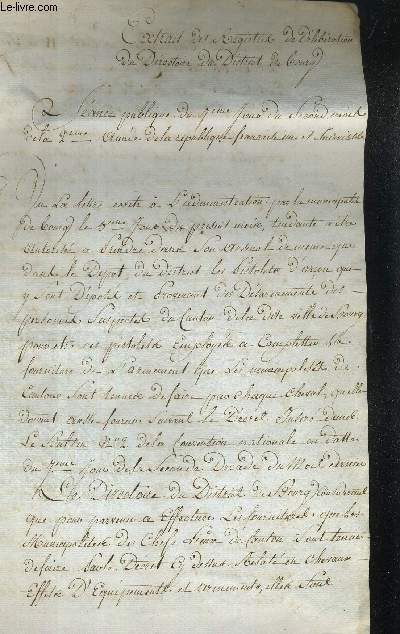 Extrait des Registres de déliberation
du Directoire du District de bourg
Séance publique du 9eme Jour du Second mois
de la 2eme année de la republique francaise une et Indivisible
Vu la lettre ecrite à L'administration par la municipalité
de bourg le 5eme Jour du present mois, tendante à être
autorisé a prendre dans Son arsenal de meme que
dans le Depot du District les pistolets d'arcon qui
y Sont Déposés et Provenant des Désarmements des
personnes Suspectes du Canton de la dite ville de bourg
pour être ces pistolets Employés a Completter la
fourniture de L'armement que les municipalités de
Canton Sont tenues de faire pour chaque Cheval, qu'elles
doivent fournir Suivant le Decret
de la Convention nationale en datte
du 7eme Jour de la Seconde Decade du Mois dernier
Le Directoire du District de Bourg Considerant
que pour parvenir a Effectuer Les fournitures que les
Municipalités des Chefs Lieux de Canton Sont tenues
de faire par le Decret Cy dessus Relaté en Chevaux
Effets D'Equipements et armements, elles Sont